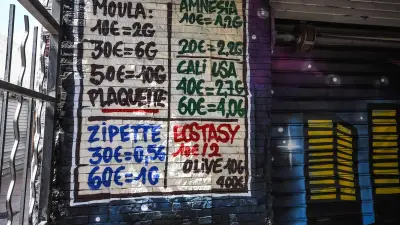 MOULA:
10€=2G
30€=6G
50€=10G
PLAQUETTE
AMNESIA
10€=1,2G
20€=2,2G
CALI USA
40€=2,7G
60€=4,0G
ZIPETTE
30€=0,5G
60€=1G
ECSTASY
10€/2
OLIVE 10G
400€